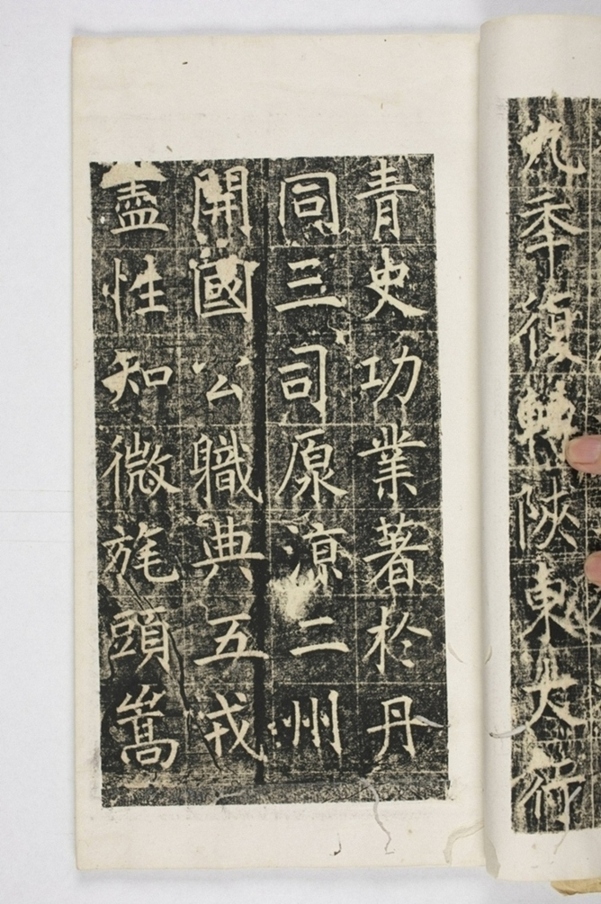 九年復轉陝東大行
青史功業著於丹
同三司原涼二州
開國公職典五戎
盡性知微旄頭嵩